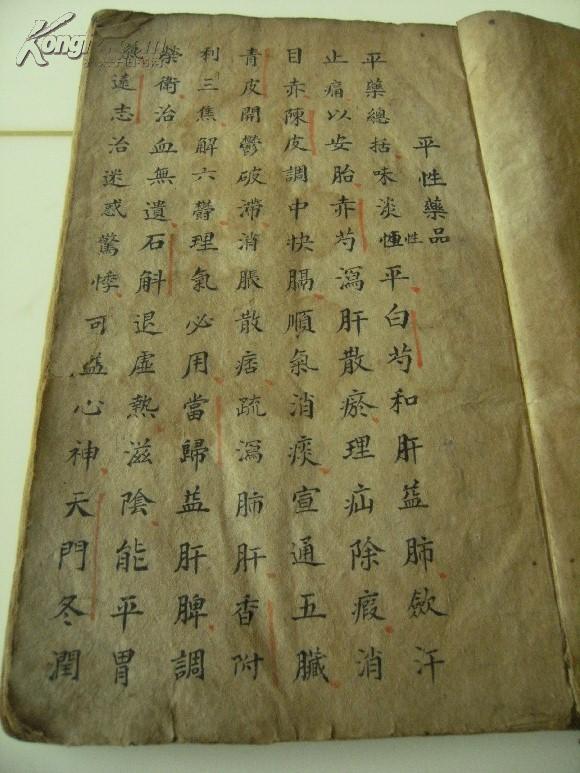 平性藥品
平藥總括味淡性恆平白芍和肝益肺歛汗
止痛以安胎赤芍瀉肝散瘀理疝除瘕消
目赤陳皮調中快膈順氣消痰宣通五臟
青皮開鬱破滯消脹散痞疏瀉肺肝香附
利三焦解六鬱理氣必用當歸益肝脾調
榮衛治血無遺石斛退虛熱滋陰能平胃
遠志治迷惑驚悸可益心神天門冬潤